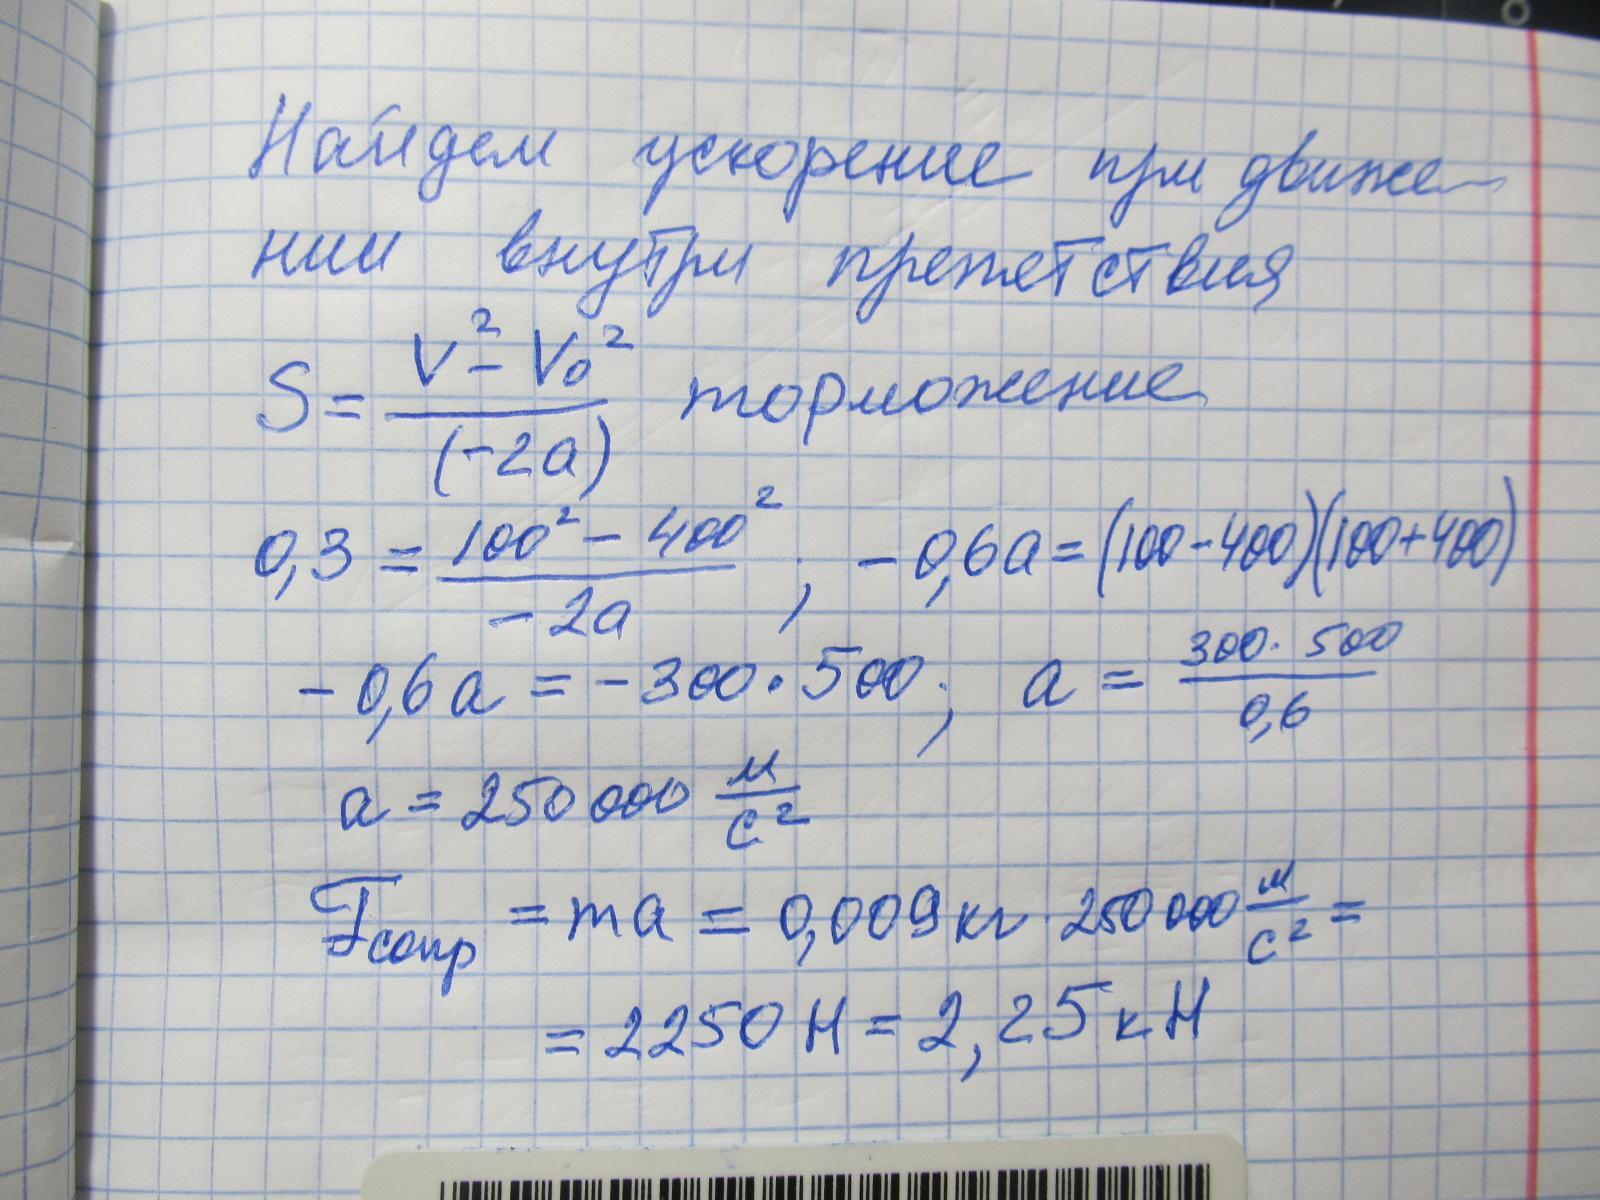 Найдем ускорение при движе-
нии внутри препятствия
S = \frac{V^2 - V_0^2}{(-2a)} торможение
0,3 = \frac{100^2 - 400^2}{-2a} ; -0,6a = (100-400)(100+400)
-0,6a = -300·500; a = \frac{300·500}{0,6}
a = 250 000 \frac{м}{с^2}
F_{сопр} = ma = 0,009 кг · 250 000 \frac{м}{с^2} =
= 2250 Н = 2,25 кН